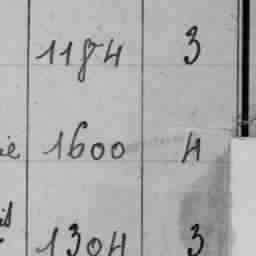 1184 3
ie 1600 4
1304 3